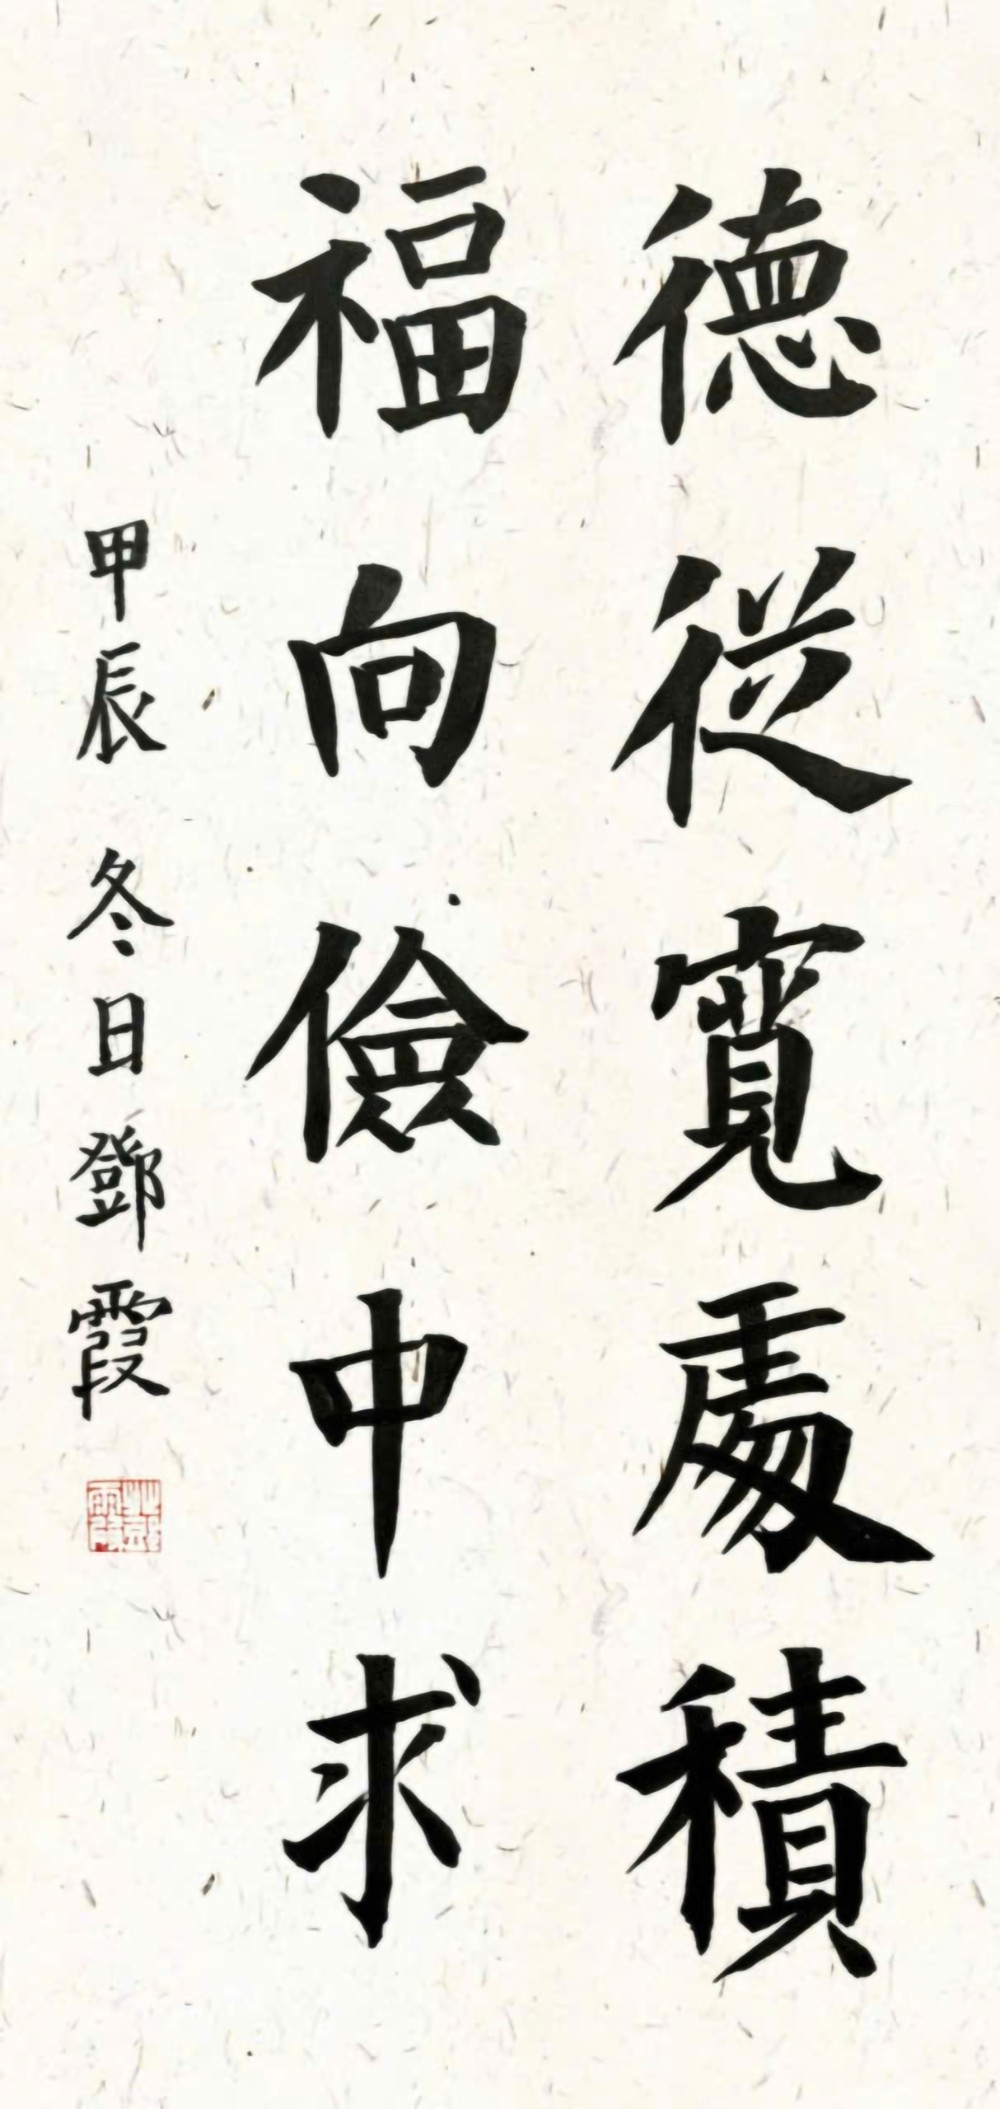 德從寬處積
福向儉中求
甲辰冬日鄧霞